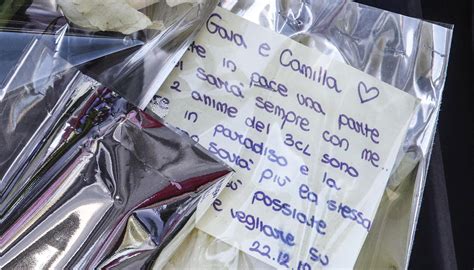 Gaia e Camilla ♡
in pace una parte
sarà sempre con me...
2 anime del 3CL sono
in paradiso e la
sarà più la stessa
possiate
vegliare su
22.12.19